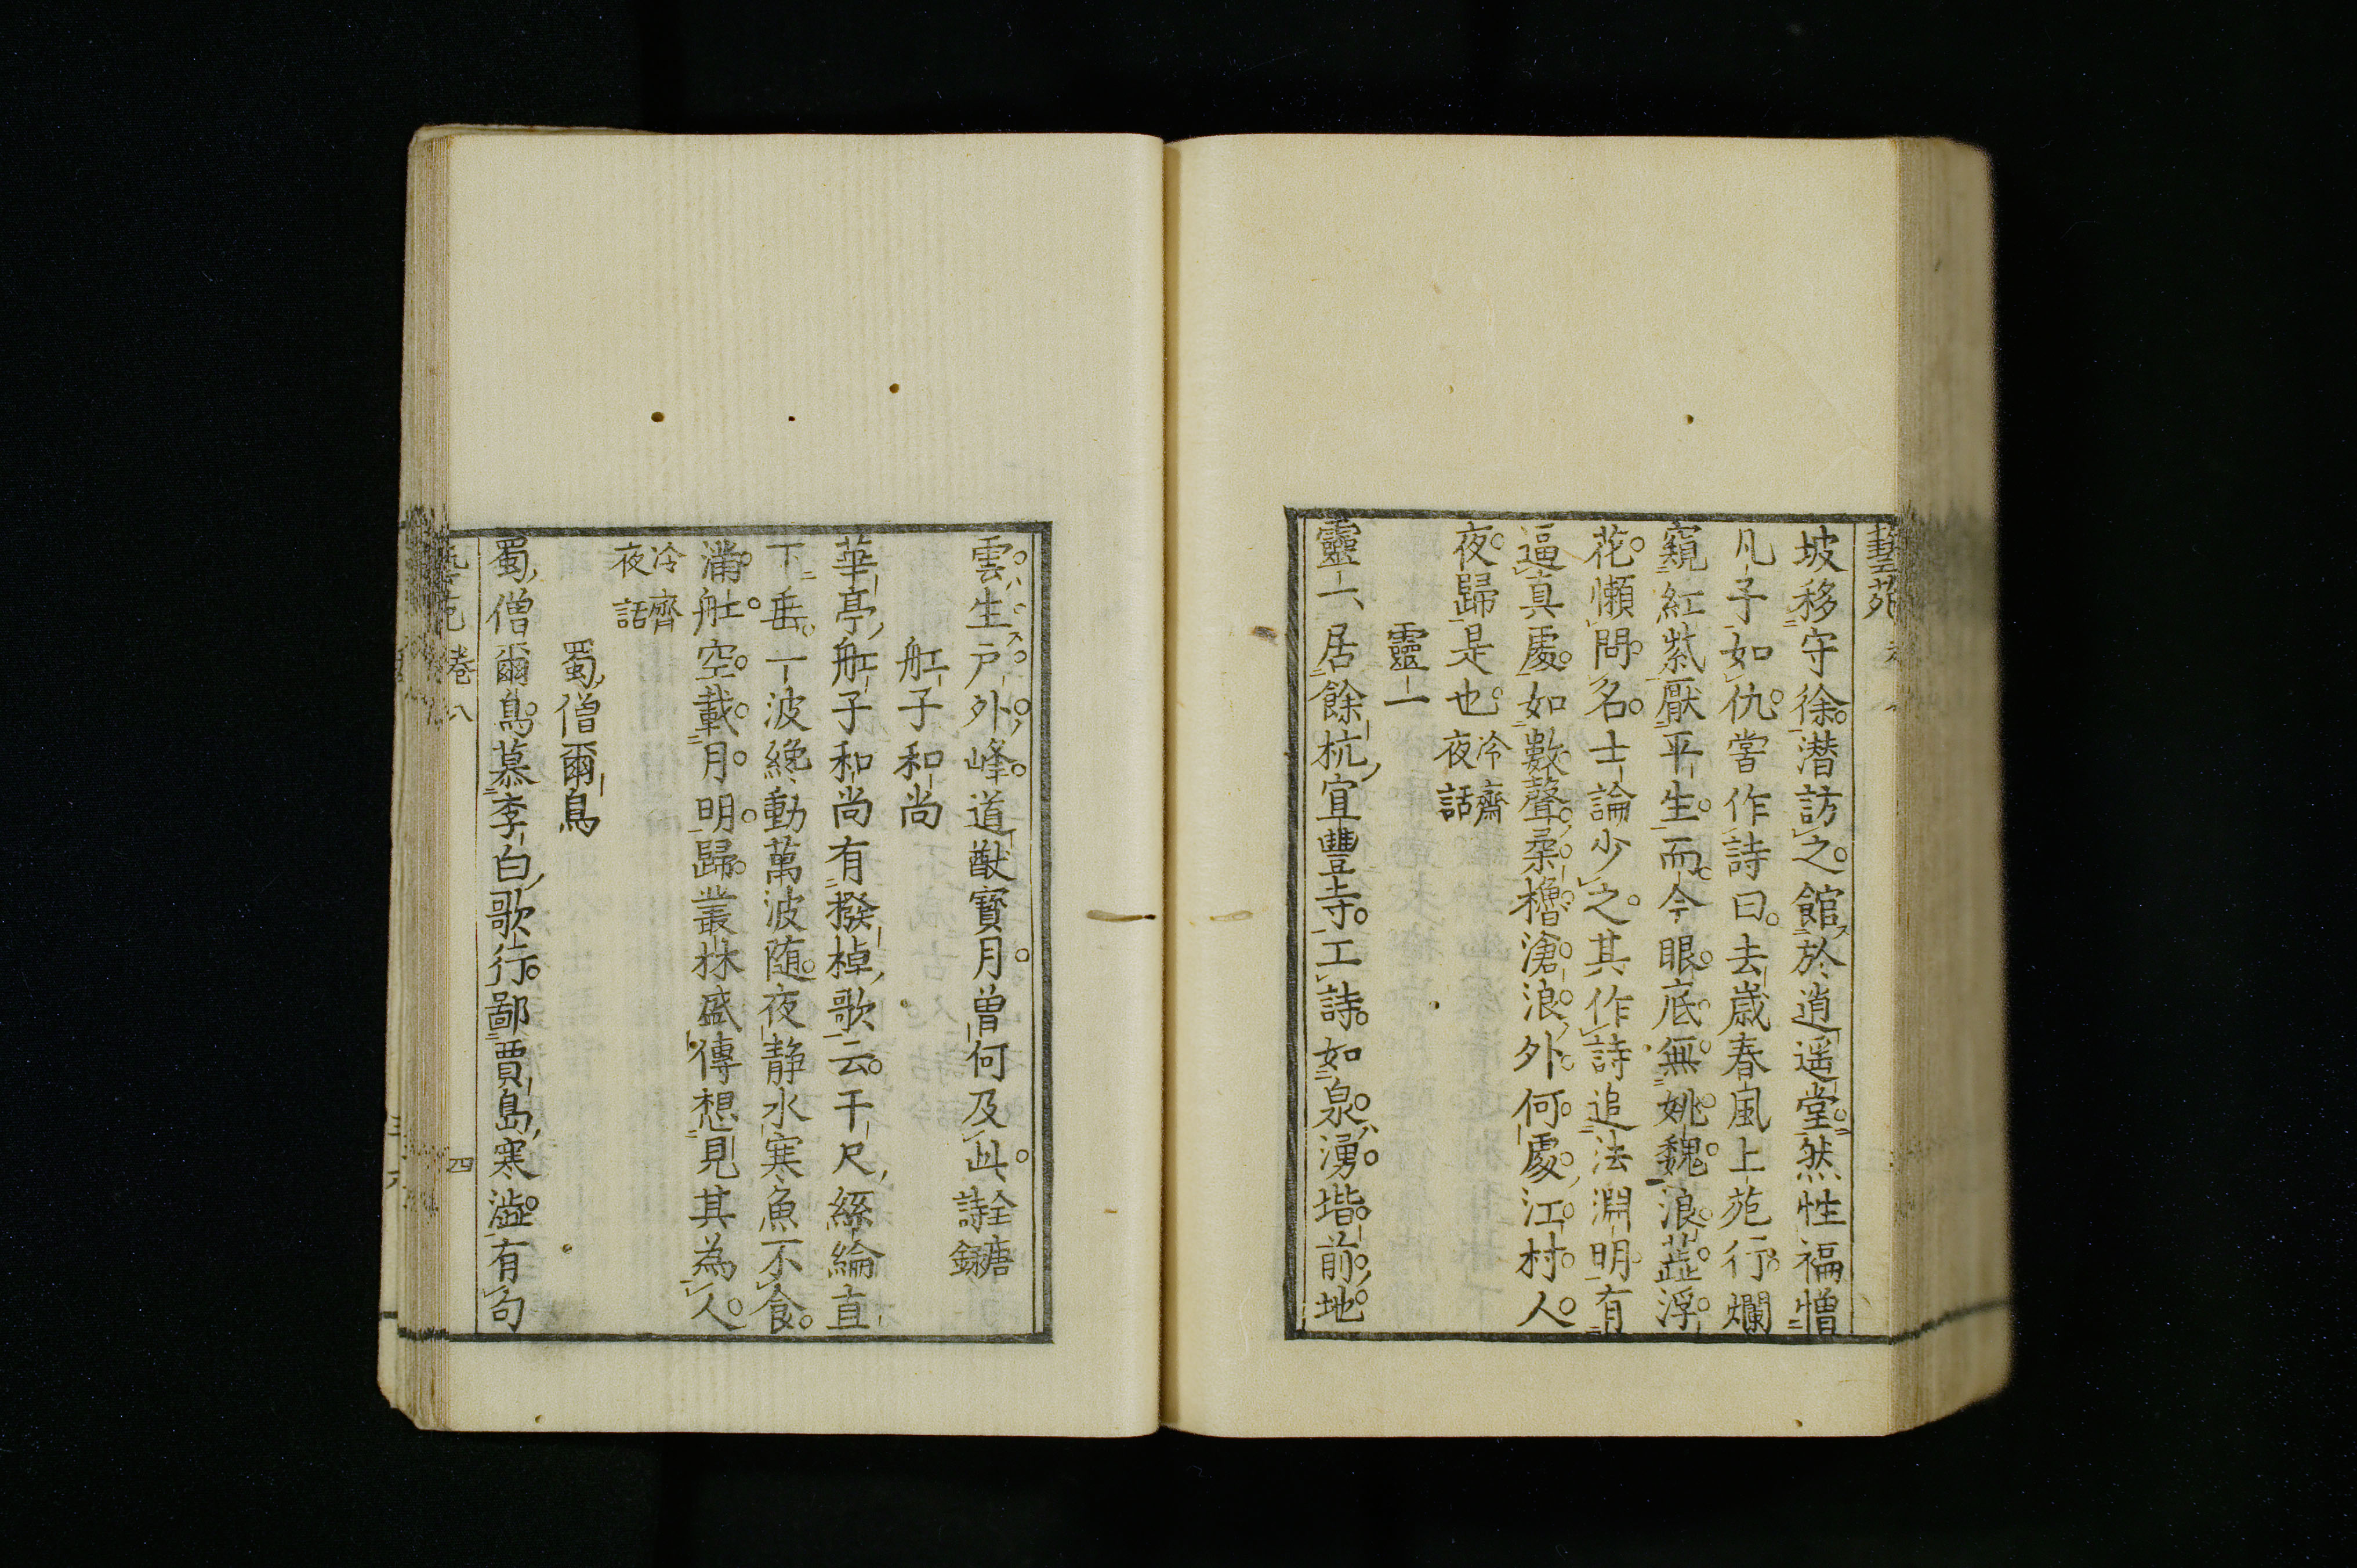 藝苑
坡移守徐潜訪之館於逍遥堂然性福憎
凡子如仇嘗作詩曰去歳春風上苑行爛
窺紅紫厭平生而今眼底無姚魏浪蘂浮
花懶問名士論少之其作詩追法淵明有
逼真處如數聲柔櫓滄浪外何處江村人
夜歸是也冷齊夜話
靈一
靈一居餘杭宜豐寺工詩如泉湧堦前地
雲生戸外峰道猷寶月曽何及此全唐詩錄
舡子和尚
華亭舡子和尚有撥棹歌云千尺絲綸直
下垂一波纔動萬波随夜静水寒魚不食
滿舡空載月明歸叢林盛傳想見其為人
冷齊夜話
蜀僧爾鳥
蜀僧爾鳥慕李白歌行鄙賈島寒澁有句
卷八
四